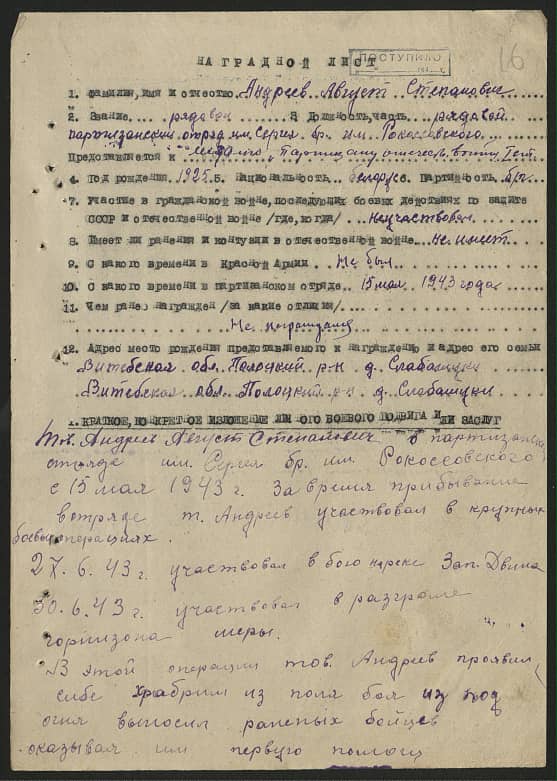 16
ПОСТУПИЛО
НАГРАДНОЙ ЛИСТ
1. Фамилия, имя и отчество Андреев Август Степанович
2. Звание.. рядовой .. 3 Должность, часть. рядовой
партизанский отряд им. Сергея бр. им. Рокоссовского
Представляется к медалью "Партизану отечеств. войны
4. Год рождения. 1925 5. Национальность. белорус 6. Партийность б/п
7. Участие в гражданской войне, последующих боевых действиях по защите
СССР и отечественной войне /где, когда/ .. неучаствовал
8. Имеет ли ранения и контузии в отечественной войне.. не имеет
9. С какого времени в Красной Армии.. Не был
10. С какого времени в партизанском отряде.. 15 мая 1943 года
11. Чем ранее награжден /за какие отличия/
Не награждался
12. Адрес место рождения представляемого к награждению и адрес его семьи
Витебская обл. Полоцкий р-н д.
Витебская обл. Полоцкий р-н д.
1. КРАТКОЕ, КОНКРЕТНОЕ ИЗЛОЖЕНИЕ ЛИЧНОГО БОЕВОГО ПОДВИГА ИЛИ ЗАСЛУГ
Тов. Андреев Август Степанович в партизанском
отряде им. Сергея бр. им Рокоссовского
с 15 мая 1943 г. За время прибывание
вотряде т. Андреев участвовал в крупных
боевых операциях.
27.6.43 г. участвовал в бою нареке Зап. Двина
30.6.43 г. участвовал в разгроме
горнизона
В этой операции тов. Андреев проявил
себе храбрим из поля боя из под
огня выносил раненых бойцов
оказывал им первую помощь